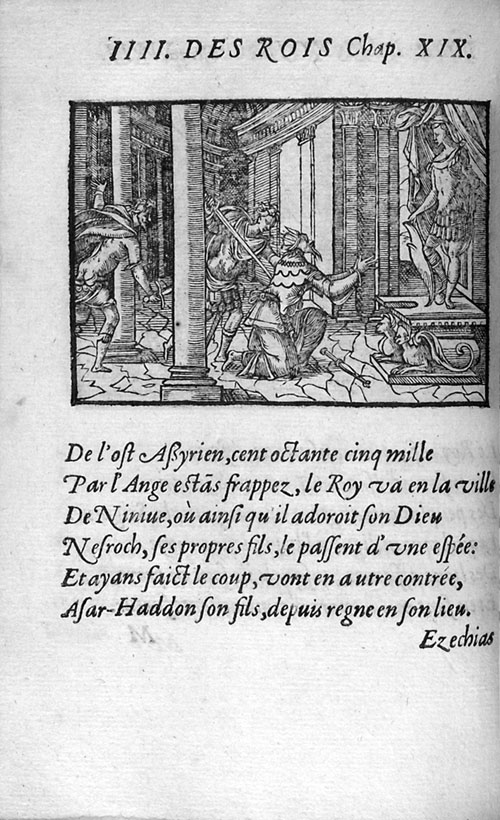 IIII. DES ROIS Chap. XIX.
De l'ost Aßyrien, cent octante cinq mille
Par l'Ange estãs frappez, le Roy va en la ville
De Niniue, où ainsi qu'il adoroit son Dieu
Nesroch, ses propres fils, le passent d'vne espée:
Et ayans faict le coup, vont en autre contrée,
Asar-Haddon son fils, depuis regne en son lieu.
Ezechias